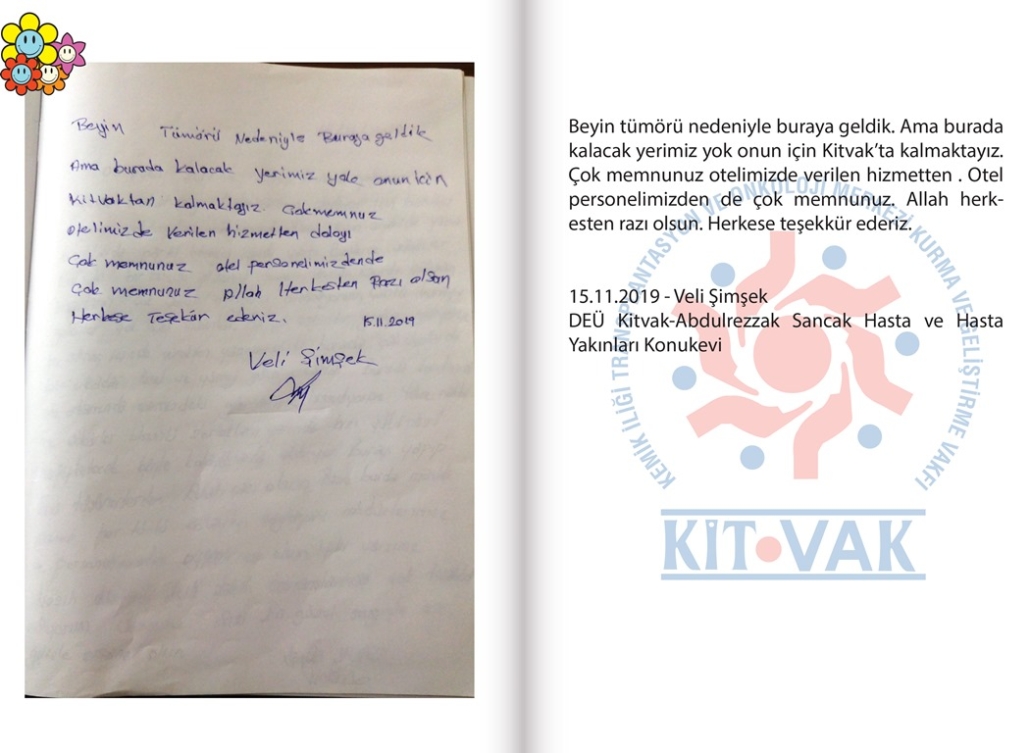 Beyin Tümörü Nedeniyle Buraya geldik
Ama burada kalacak yerimiz yok onun için
Kitvaktan kalmaktayız. Çokmemnuz
otelimizde verilen hizmetten dolayı
Çok memnunuz otel personelimizdende
Çok memnunuz Allah Herkesten Razı olsan
Herkese Teşekür ederiz. 15.11.2019
Veli Şimşek
Beyin tümörü nedeniyle buraya geldik. Ama burada
kalacak yerimiz yok onun için Kitvak’ta kalmaktayız.
Çok memnunuz otelimizde verilen hizmetten . Otel
personelimizden de çok memnunuz. Allah herk-
esten razı olsun. Herkese teşekkür ederiz.
15.11.2019 - Veli Şimşek
DEÜ Kitvak-Abdulrezzak Sancak Hasta ve Hasta
Yakınları Konukevi
KEMİK İLİĞİ TRANSPLANTASYON VE ONKOLOJİ MERKEZİ KURMA VE GELİŞTİRME VAKFI
KİT VAK